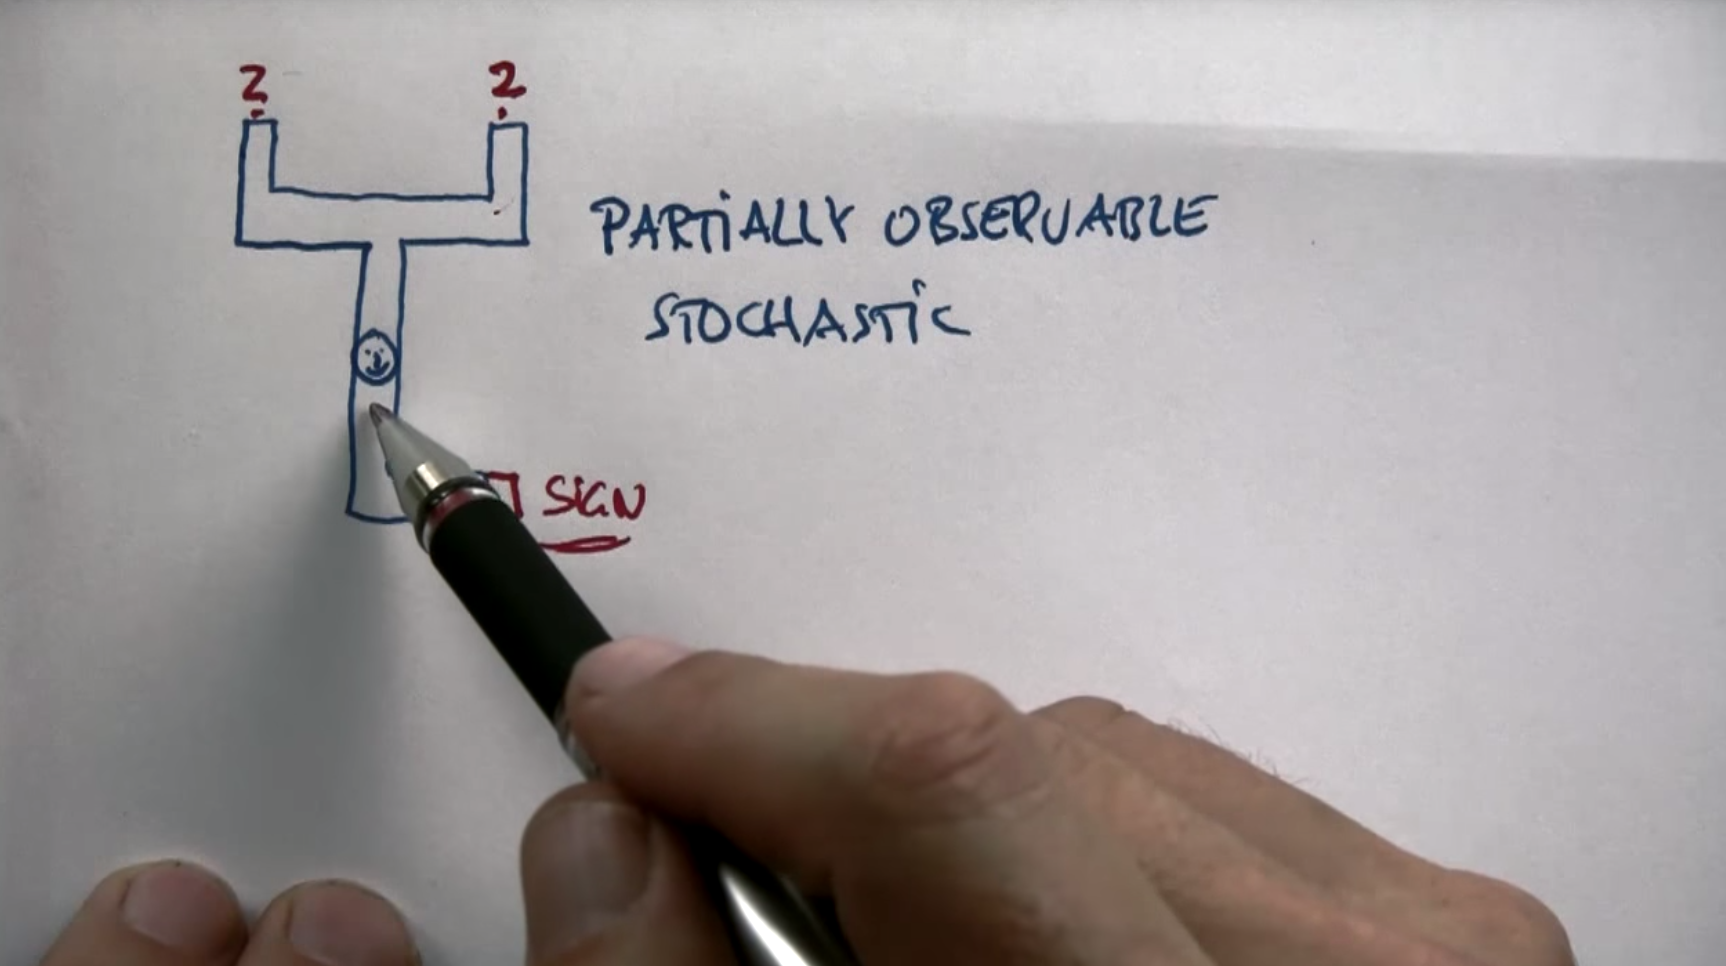 ? ?
PARTiALLY OBSERVABLE
STOCHASTiC
SiGN